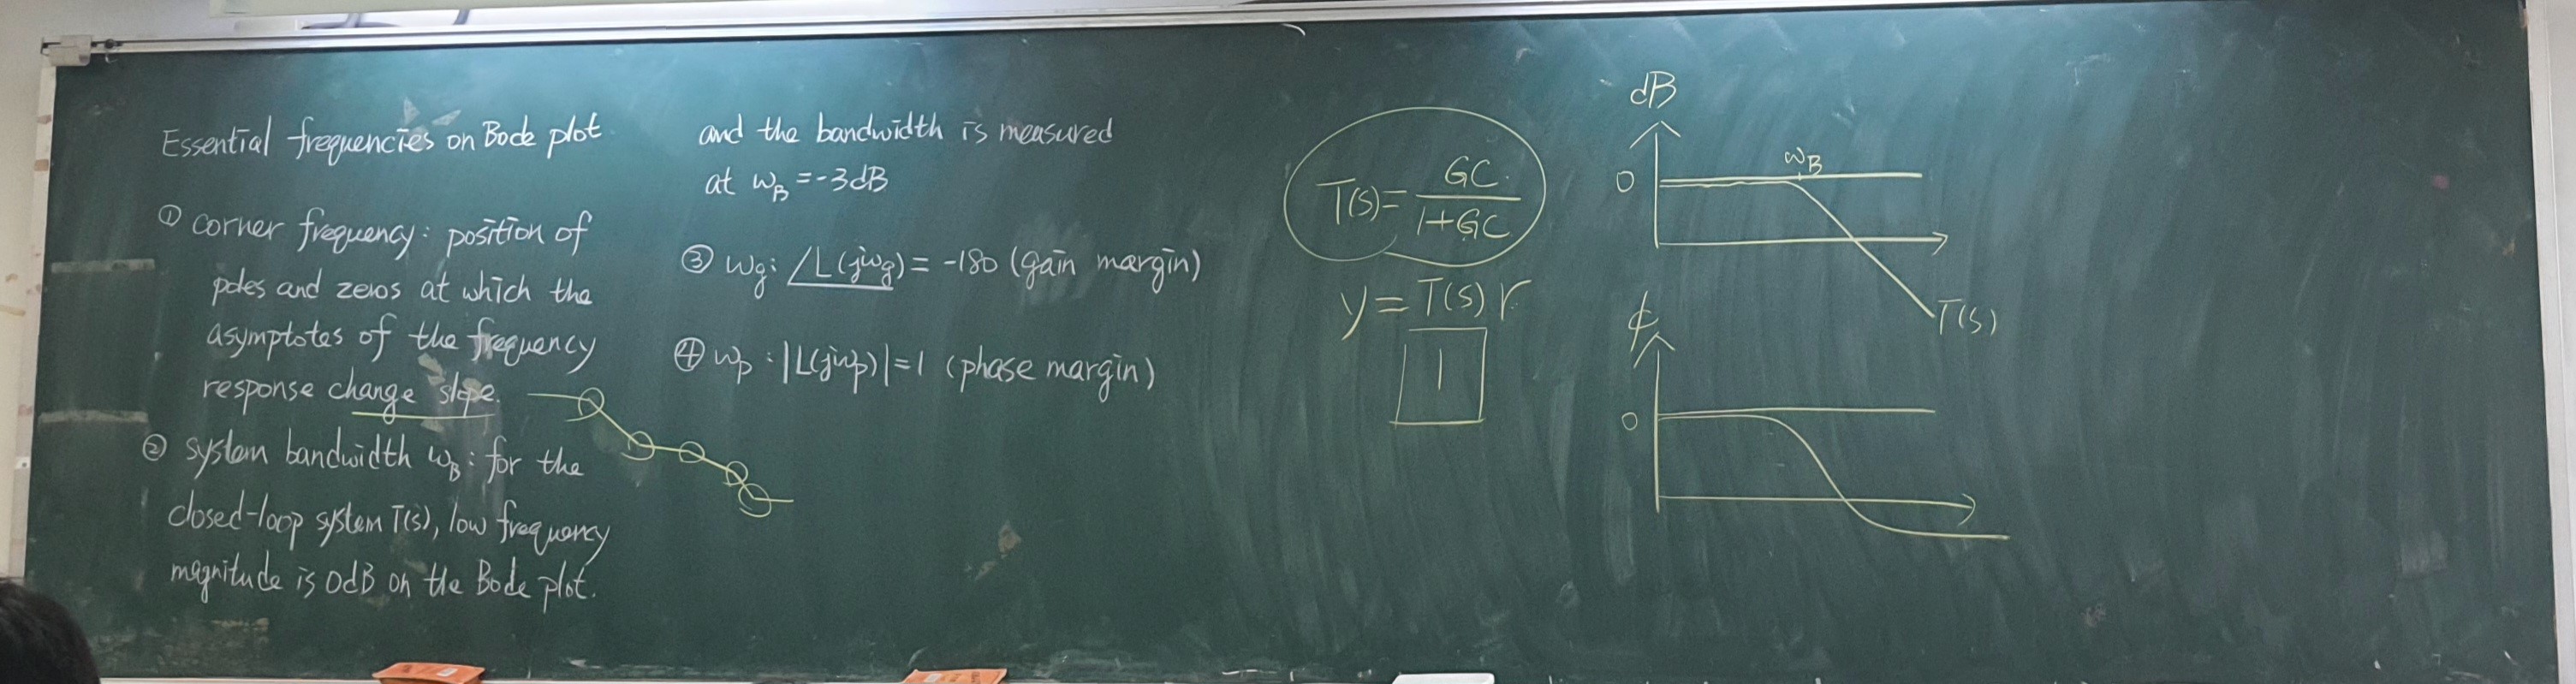 Essential frequencies on Bode plot
① corner frequency: position of
poles and zeros at which the
asymptotes of the frequency
response change slope.
② system bandwidth ω_B: for the
closed-loop system T(s), low frequency
magnitude is 0dB on the Bode plot.
and the bandwidth is measured
at ω_B = -3dB
③ ωg: ∠L(jωg) = -180 (gain margin)
④ ωp: |L(jωp)| = 1 (phase margin)
T(s) = GC / 1+GC
y = T(s) r
1
dB
0
ω_B
T(s)
φ
0